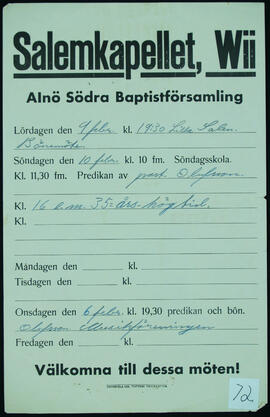 Salemkapellet, Wii
Alnö Södra Baptistförsamling
Lördagen den 9 febr. kl. 19.30 Lilla Salen.
Bönemöte.
Söndagen den 10 febr. kl. 10 fm. Söndagsskola.
Kl. 11,30 fm. Predikan av past. Olofsson.
Kl. 16 e.m. 35=års-högtid.
Måndagen den kl.
Tisdagen den kl.
Onsdagen den 6 febr. kl. 19,30 predikan och bön.
Olofsson Musikföreningen
Fredagen den kl.
Välkomna till dessa möten!
72